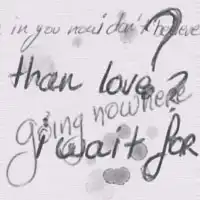 in you now i don't believe
?
than love?
going nowhere
i wait for